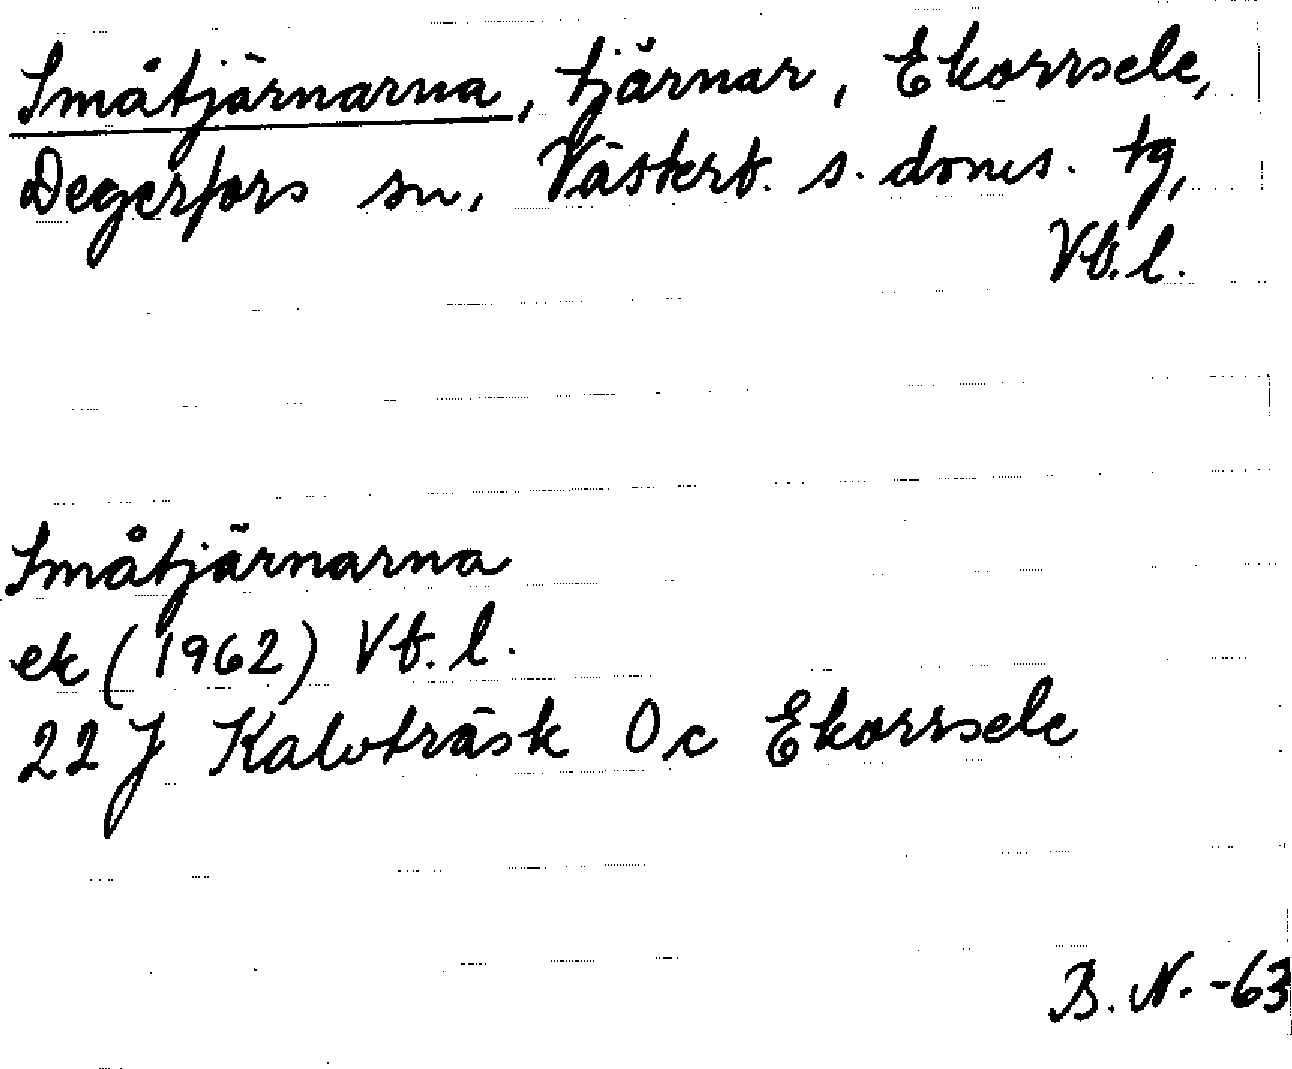 Småtjärnarna, tjärnar, Ekorrsele,
Degerfors sn, Västerb. s. doms. tg,
Vb. l.
Småtjärnarna
ek (1962) Vb. l.
22 J Kalvträsk 0 c Ekorrsele
B. N. -63